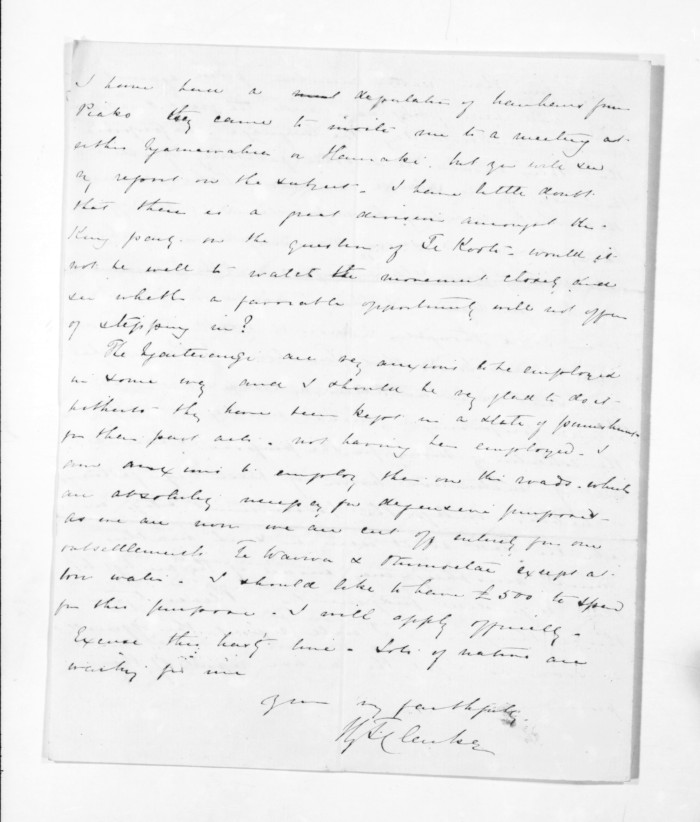 I have had a deputation of Hauhaus from
Piako they came to invite me to a meeting at
either or Hauraki. but you will see
my report on the subject. I have little doubt
that there is a great division amongst the
King party on the question of Te Kooti. would it
not be well to watch the movement closely and
see whether a favorable opportunity will not offer
of stepping in?
The Ngaiterangi are very anxious to be employed
in some way and I should be very glad to do it
hitherto they have been kept in a state of punishment
for their past acts. not having been employed. I
am anxious to employ them on the roads. which
are absolutely necessary for defensive purposes.
as we are now we are cut off entirely from our
outsettlements Te Wairoa & except at
low water. I should like to have £500 to spend
for this purpose. I will apply officially.
Excuse this hasty line. Lots of natives are
waiting for me
Yours very faithfully
H T Clarke